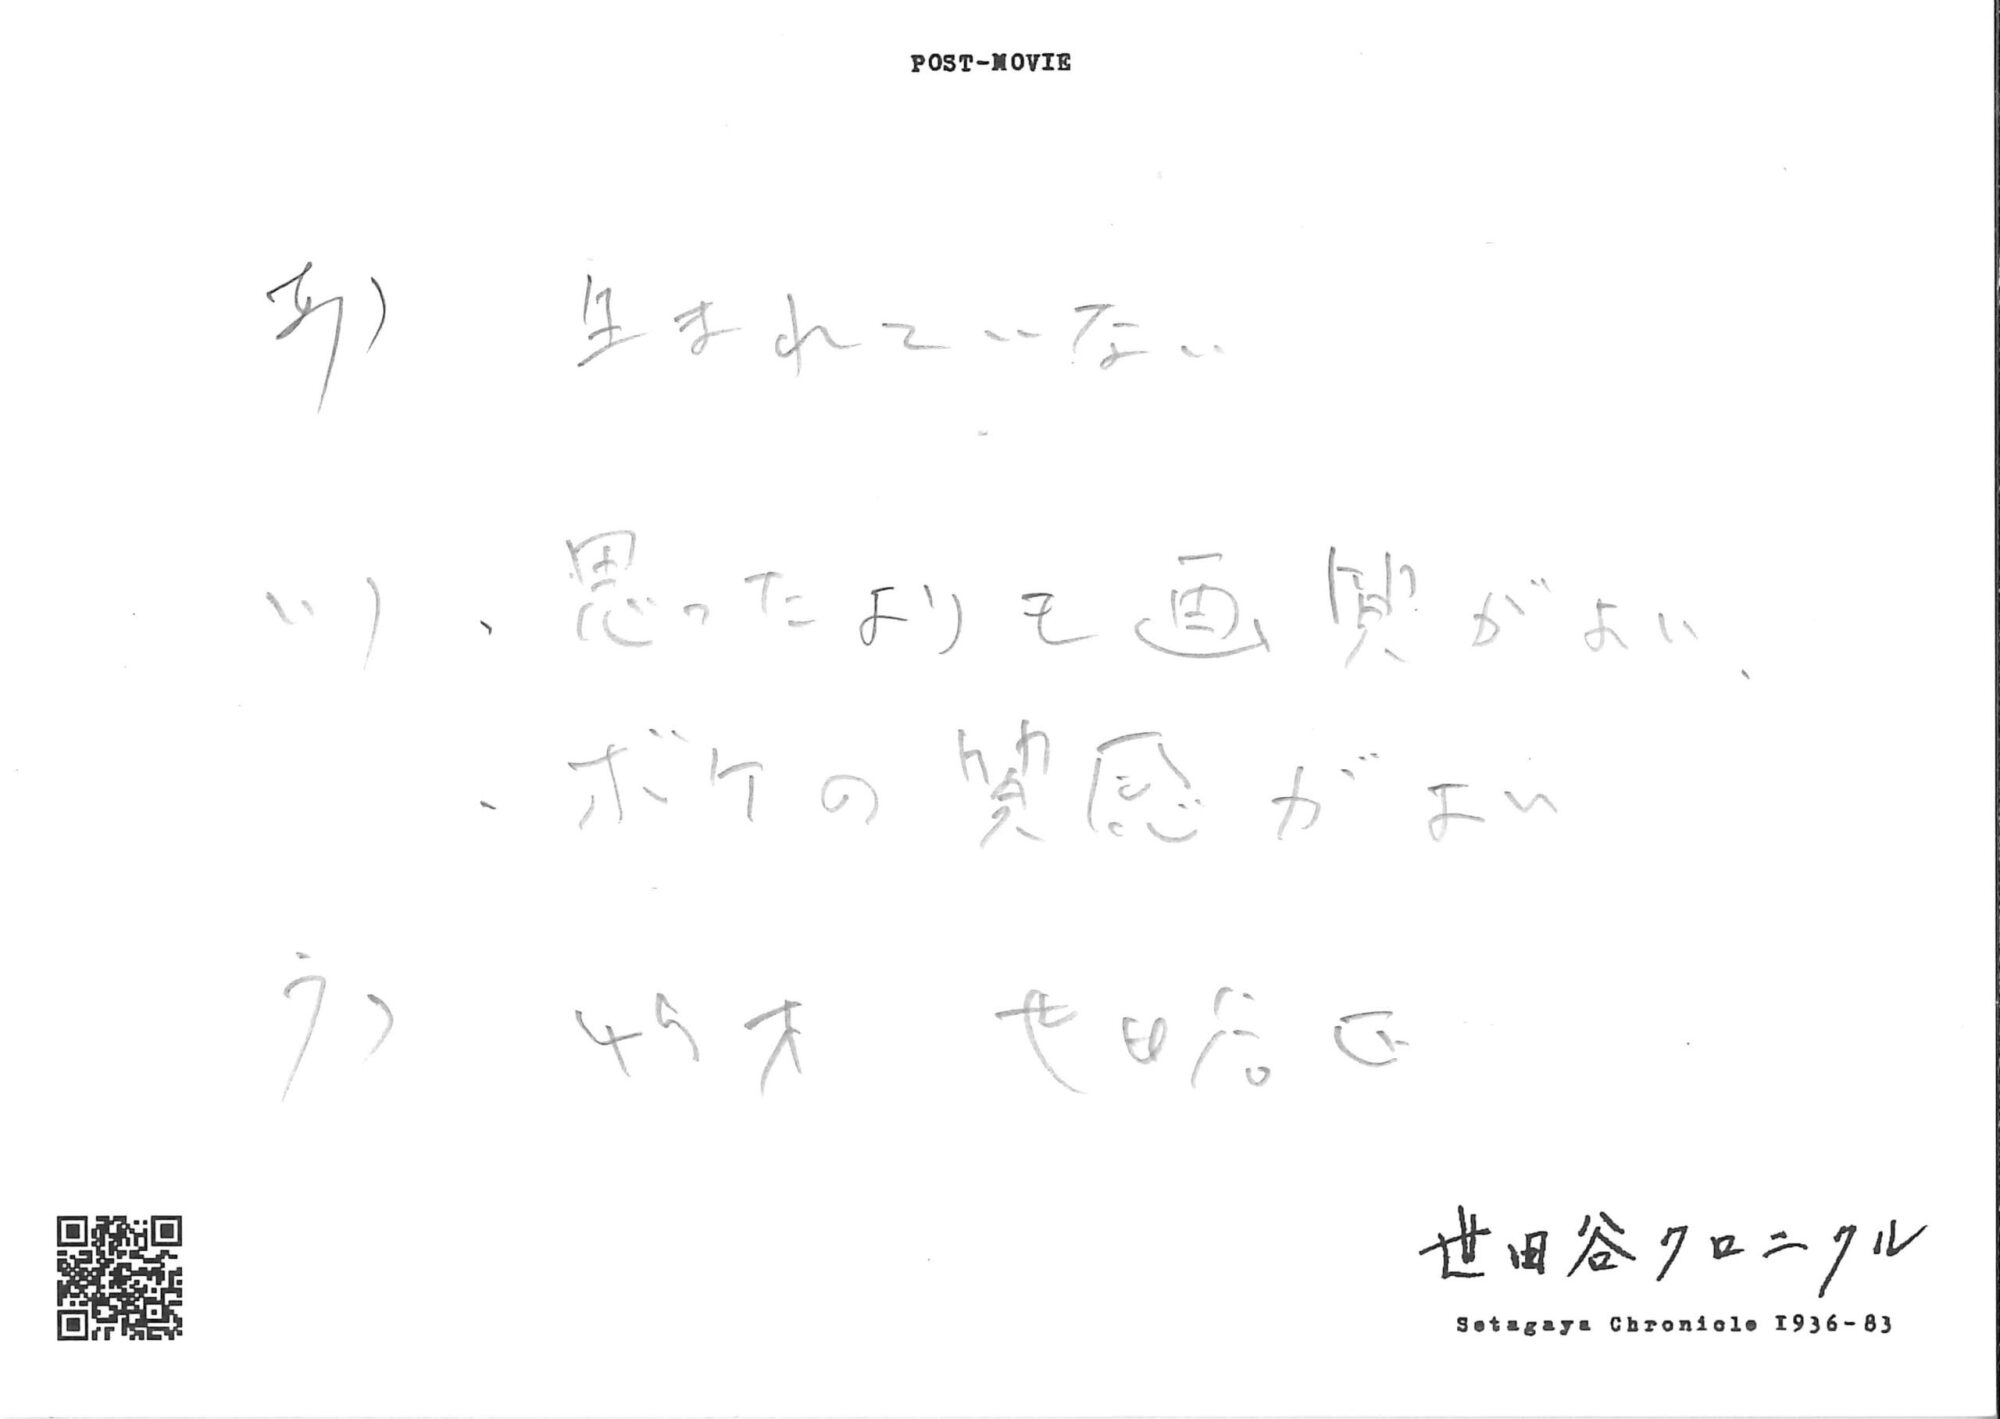 POST-MOVIE
あ) 生まれていない
い)・思ったよりも画質がよい、
・ボケの質感がよい
う) 45才 世田谷区
世田谷クロニクル
Setagaya Chronicle 1936-83